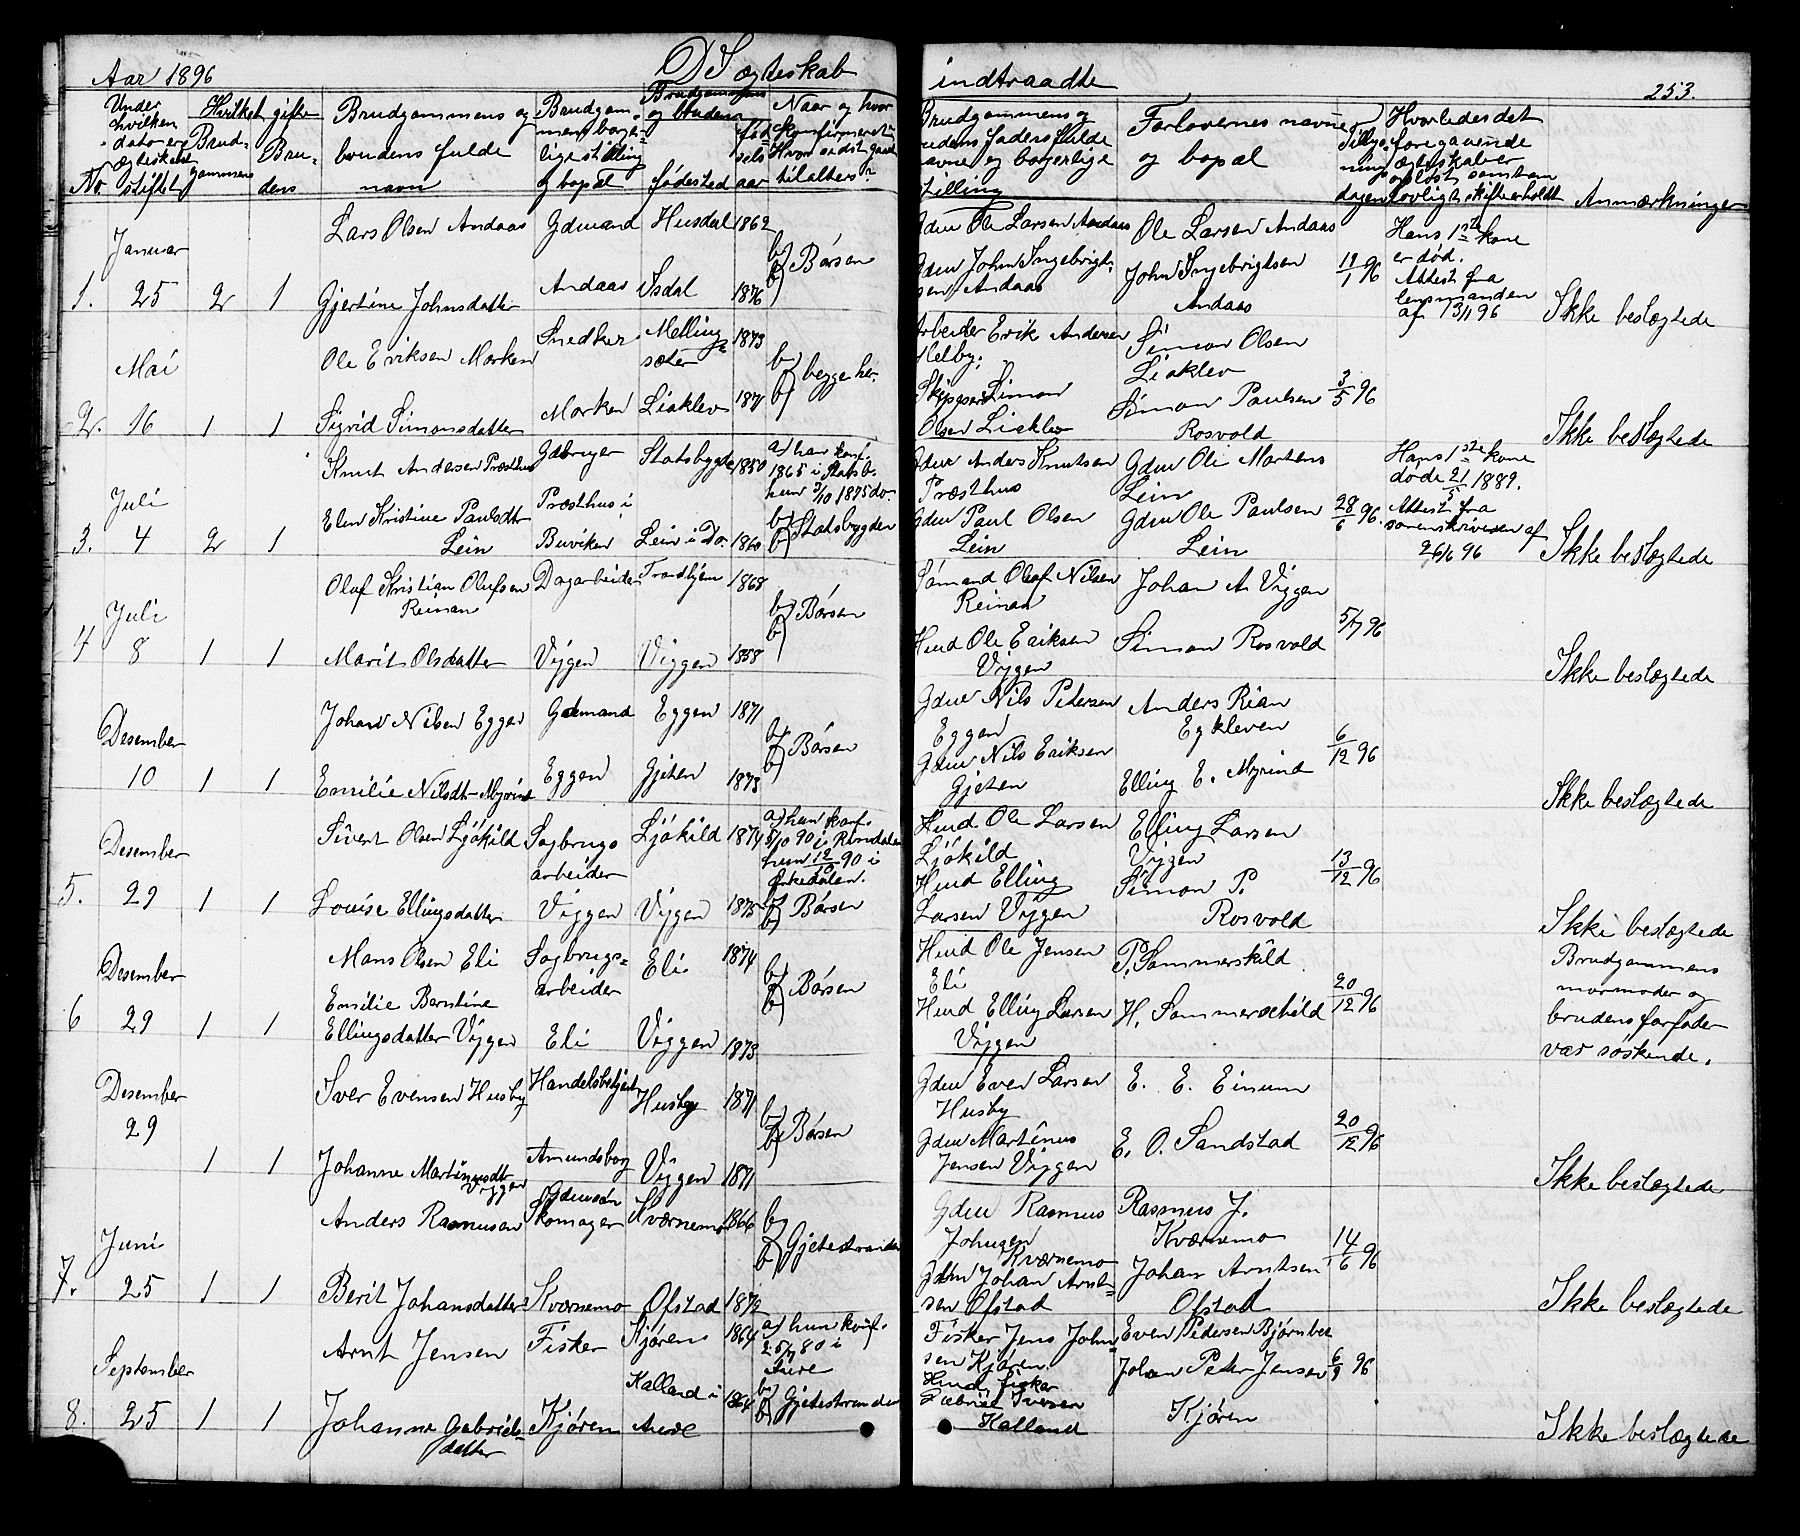 Aar 1896
D. I ægteskab
indtraadte
253.
No
Under hvilken dato er ægteskabet stiftet
Hvilket gifte
Brudgommens
Brudens
Brudgommens og brudens fulde navn
Brudgommens borgerlige stilling og bopæl
Brudgommens og brudens
fødested
fødselsaar
Naar og hvor konfirmeret? Hvor sidst gaaet tilalters?
Brudgommens og brudens faders fulde navne og borgerlige stilling
Forlovernes navne og bopæl
Tillysningsdagen
Hvorledes det foregaaende ægteskab er opløst samt om lovligt skifte er holdt
Anmærkninger
1.
Januar
25
2
1
Lars Olsen Andaas
Gjertine Johnsdatter
Gdmand
Andaas
Husdal
Isdal
1862
1876
b) b) Børsen
Gdm Ole Larsen Aandaas
Gdm John Ingebrigtsen Andaas
Ole Larsen Andaas
John Ingebrigtsen
Andaas
19/1 96
Hans 1ste kone
er død.
Attest fra
lensmanden
af 13/1 96
Ikke beslægtede
2.
Mai
16
1
1
Ole Eriksen Morken
Sigrid Simonsdatter
Snedker
Morken
Mellingsæter
Liaklev
1873
1871
b) b) begge her.
Arbeider Erik Andersen
Melby.
Simon
Olsen Liaklev
Simon Olsen
Liaklev
Simon Paulsen
Rosvold
3/5 96
Ikke beslægtede
3.
Juli
4
2
1
Knut Andersen Præsthus
Elen Kristine Paulsdt
Lein
Gdbruger
Præsthus i
Buviken
Statsbygden
Lein i Do.
1850
1860
a) han konf.
1865 i Statsb.
hun 3/10 1875 do.
b) b) Statsbygden
Gdm Anders Knutsen
Præsthus
Gdm Paul Olsen
Lein
Gdm Ole Martens
Lein
Gdm Ole Paulsen
Lein
28/6 96.
Hans 1ste kone
døde 21/5 1889.
Attest fra
sorenskriveren af
26/6 96
Ikke beslægtede
4
Juli
8
1
1
Olaf Kristian Olufsen
Reinan
Marit Olsdatter
Dagarbeider
Viggen
Trondhjem
Viggen
1868
1858
b) b) Børsen
Sømand Oluf Nilsen
Reinan
Hmd Ole Eriksen
Viggen
Johan A Viggen
Simon Rosvold
5/7 96
Ikke beslægtede
Desember
10
1
1
Johan Nilsen Eggen
Emilie Nilsdt Myrind
Gdmand
Eggen
Eggen
Gjeten
1871
1873
b) b) Børsen
Gdm Nils Pedersen
Eggen
Gdm Nils Eriksen
Gjeten
Anders Rian
Egkleven
Elling E. Myrind
6/12 96
Ikke beslægtede
5.
Desember
29
1
1
Sivert Olsen Ljøkild
Louise Ellingsdatter
Sagbrugs
arbeider
Viggen
Ljøkild
Viggen
1874
1875
a) han konf.
5/10 90 i
hun 12/10 90 i
Orkedalen.
b) b) Børsen
Hmd Ole Larsen
Ljøkild
Hmd Elling
Larsen Viggen
Elling Larsen
Viggen
Simon P.
Rosvold
13/12 96
Ikke beslægtede
6
Desember
29
1
1
Mons Olsen Eli
Emilie Berntine
Ellingsdatter Viggen
Sagbrugs-
arbeider
Eli
Eli
Viggen
1874
1873
b) b) Børsen
Hmd Ole Jensen
Eli
Hmd Elling Larsen
Viggen
P. Sommerskild
H. Sommerschild
20/12 96
Brudgommens
mormoder og
brudens farfader
var søskende.
Desember
29
1
1
Iver Evensen Husby
Johanne Martinusdt
Viggen
Handelsbetjent
Amundsborg
Husby
Viggen
1871
1871
b) b) Børsen
Gdm Even Larsen
Husby
Gdm Martinus
Jensen Viggen
E. E. Einum
E. O. Sandstad
20/12 96
Ikke beslægtede
7.
Juni
25
1
1
Anders Rasmusen
Berit Johansdatter
Gdmsøn
Skomager
Kværnemo
Kværnemo
Ofstad
1866
1872
b) b) Gjetestranden
Gdm Rasmus
Johnsen
Kværnemo
Gdm Johan Arnt-
sen Ofstad
Rasmus J.
Kværnemo
Johan Arntsen
Ofstad
14/6 96
Ikke beslægtede
8.
September
25
1
1
Arnt Jensen
Johanne Gabriels-
datter
Fisker
Kjøren
Kjøren
Kalland i
Aure
1864
1864
a) hun konf.
25/7 80 i
Aure
b) b) Gjetestranden
Fisker Jens John-
sen Kjøren
Hmd, fisker
Gabriel Iversen
Kalland
Even Pedersen Bjørnbet
Johan Peter Jensen
Kjøren
6/9 96
Ikke beslægtede